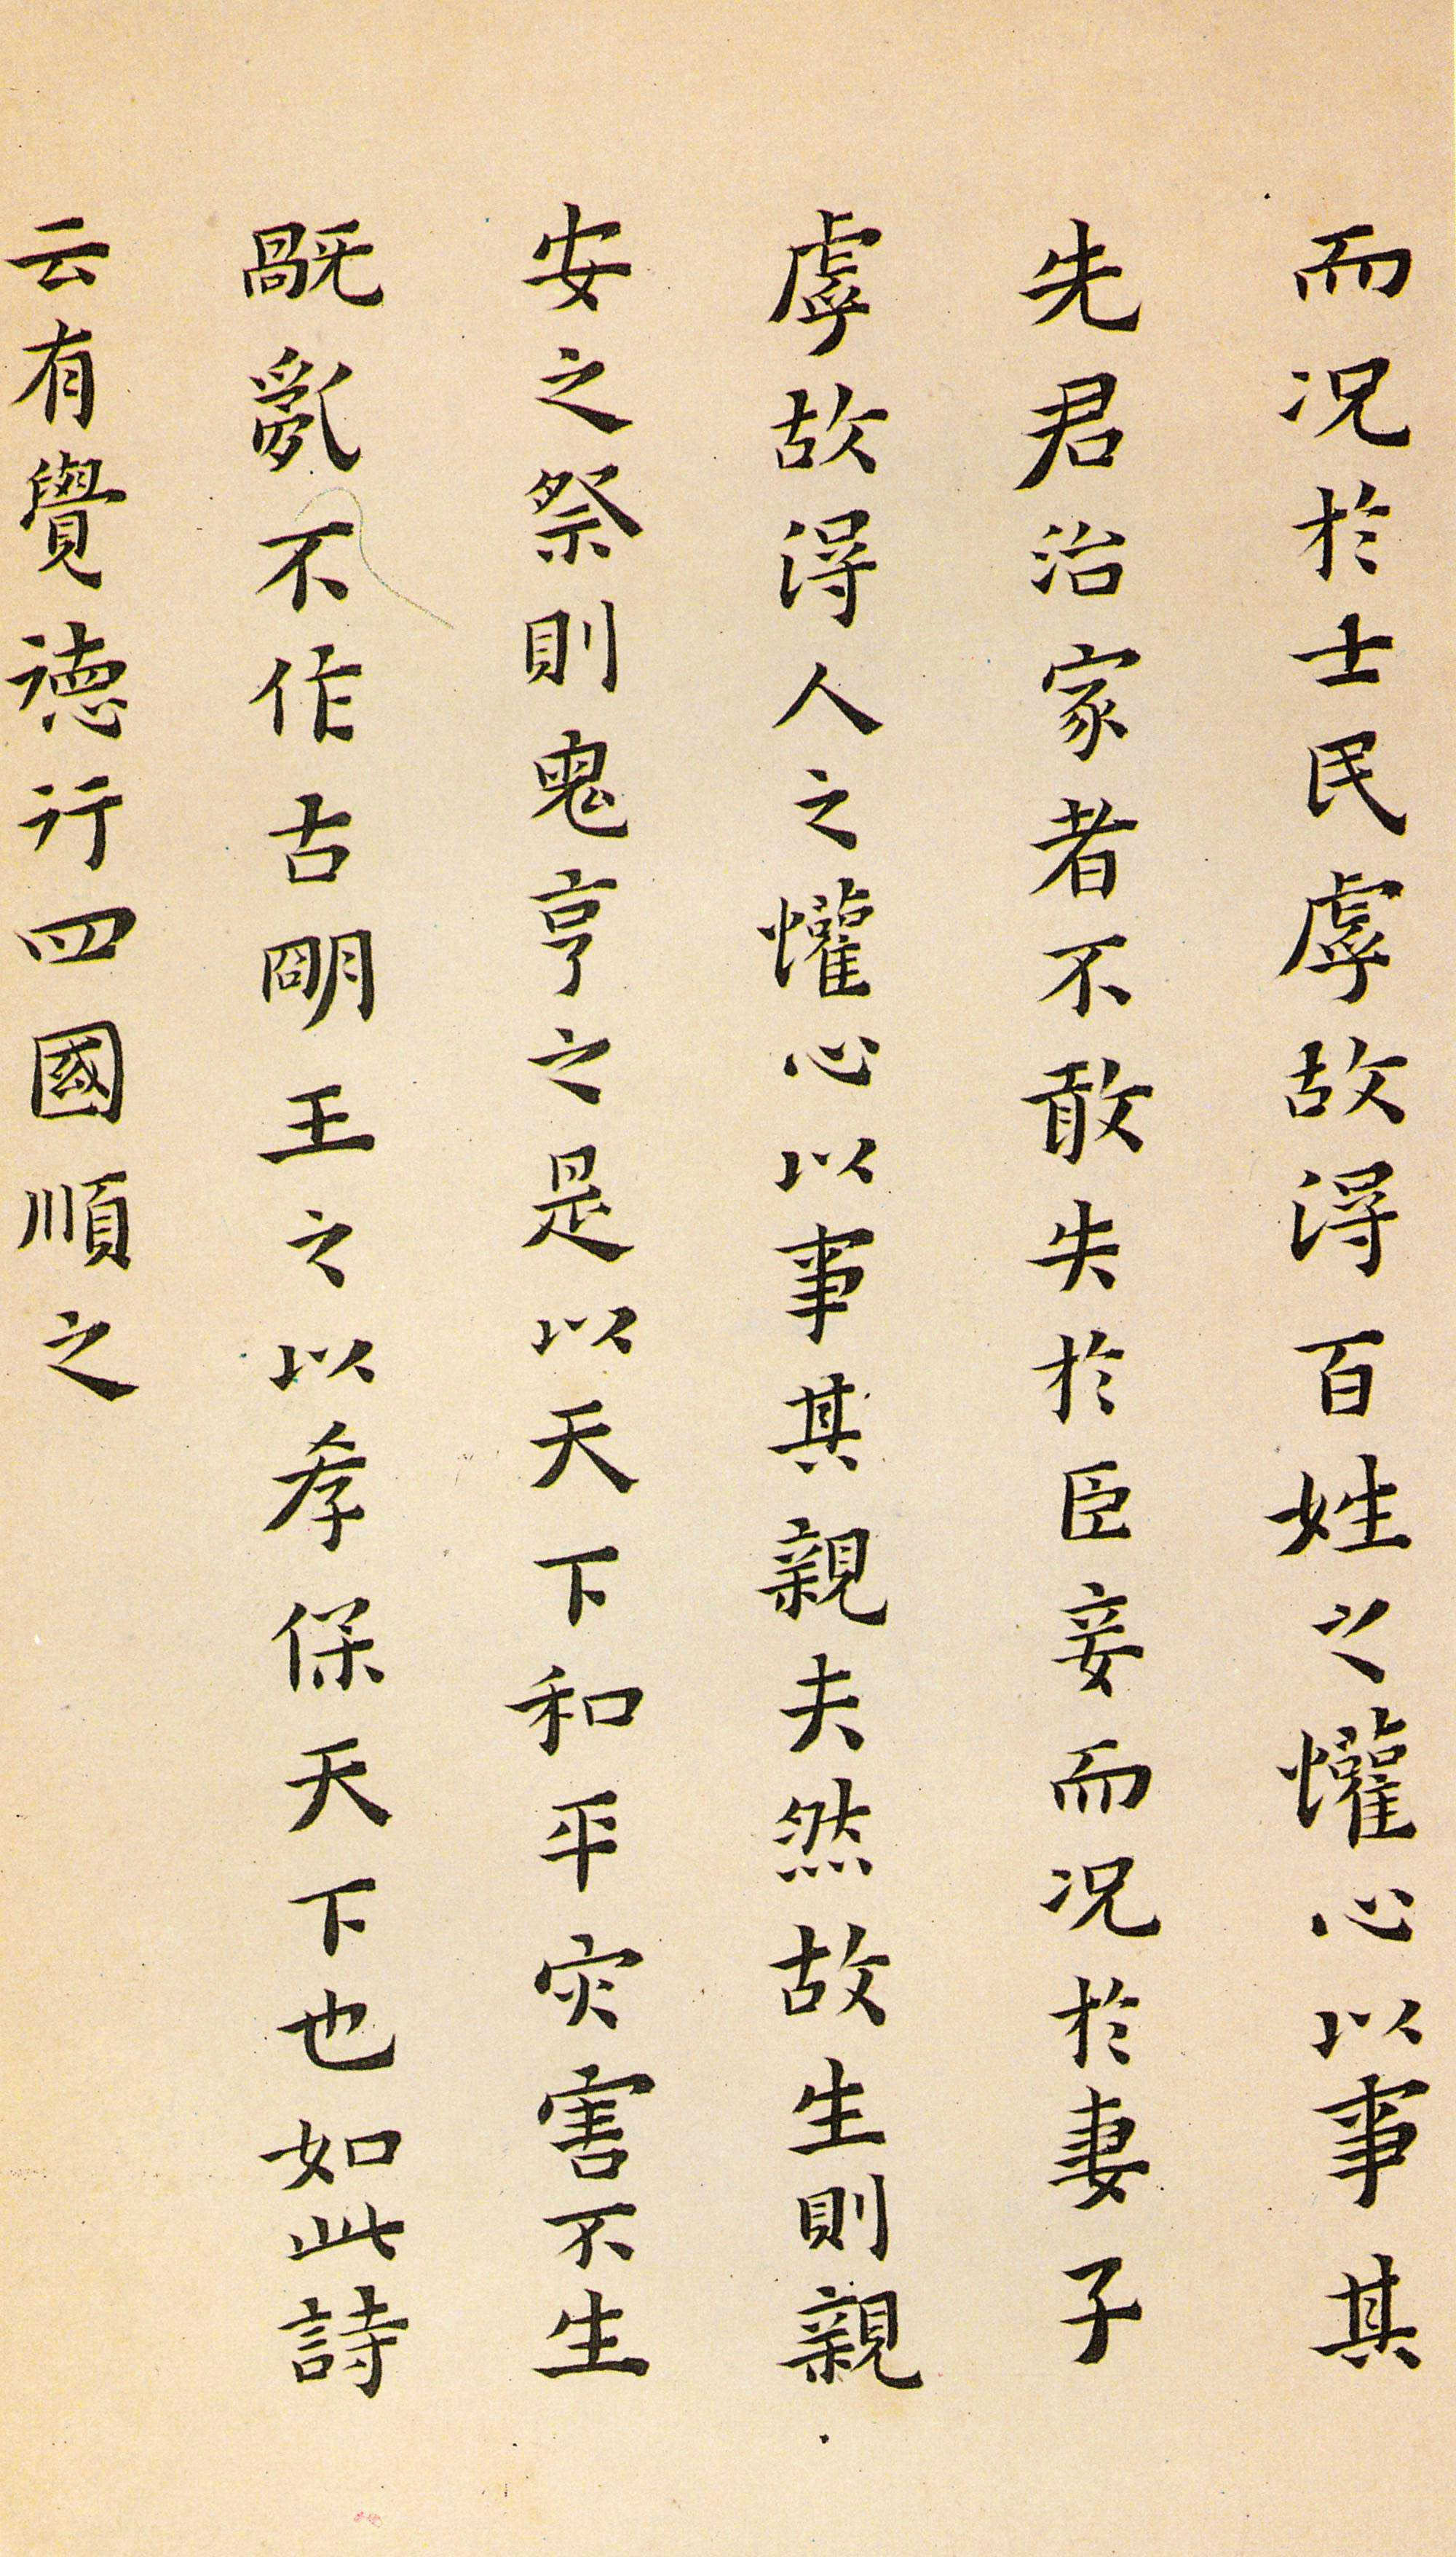 而况於士民虖故得百姓之懽心以事其
先君治家者不敢失於臣妾而况於妻子
虖故得人之懽心以事其親夫然故生則親
安之祭則鬼亨之是以天下和平灾害不生
旤亂不作古朙王之以孝保天下也如此詩
云有覺徳行四國順之